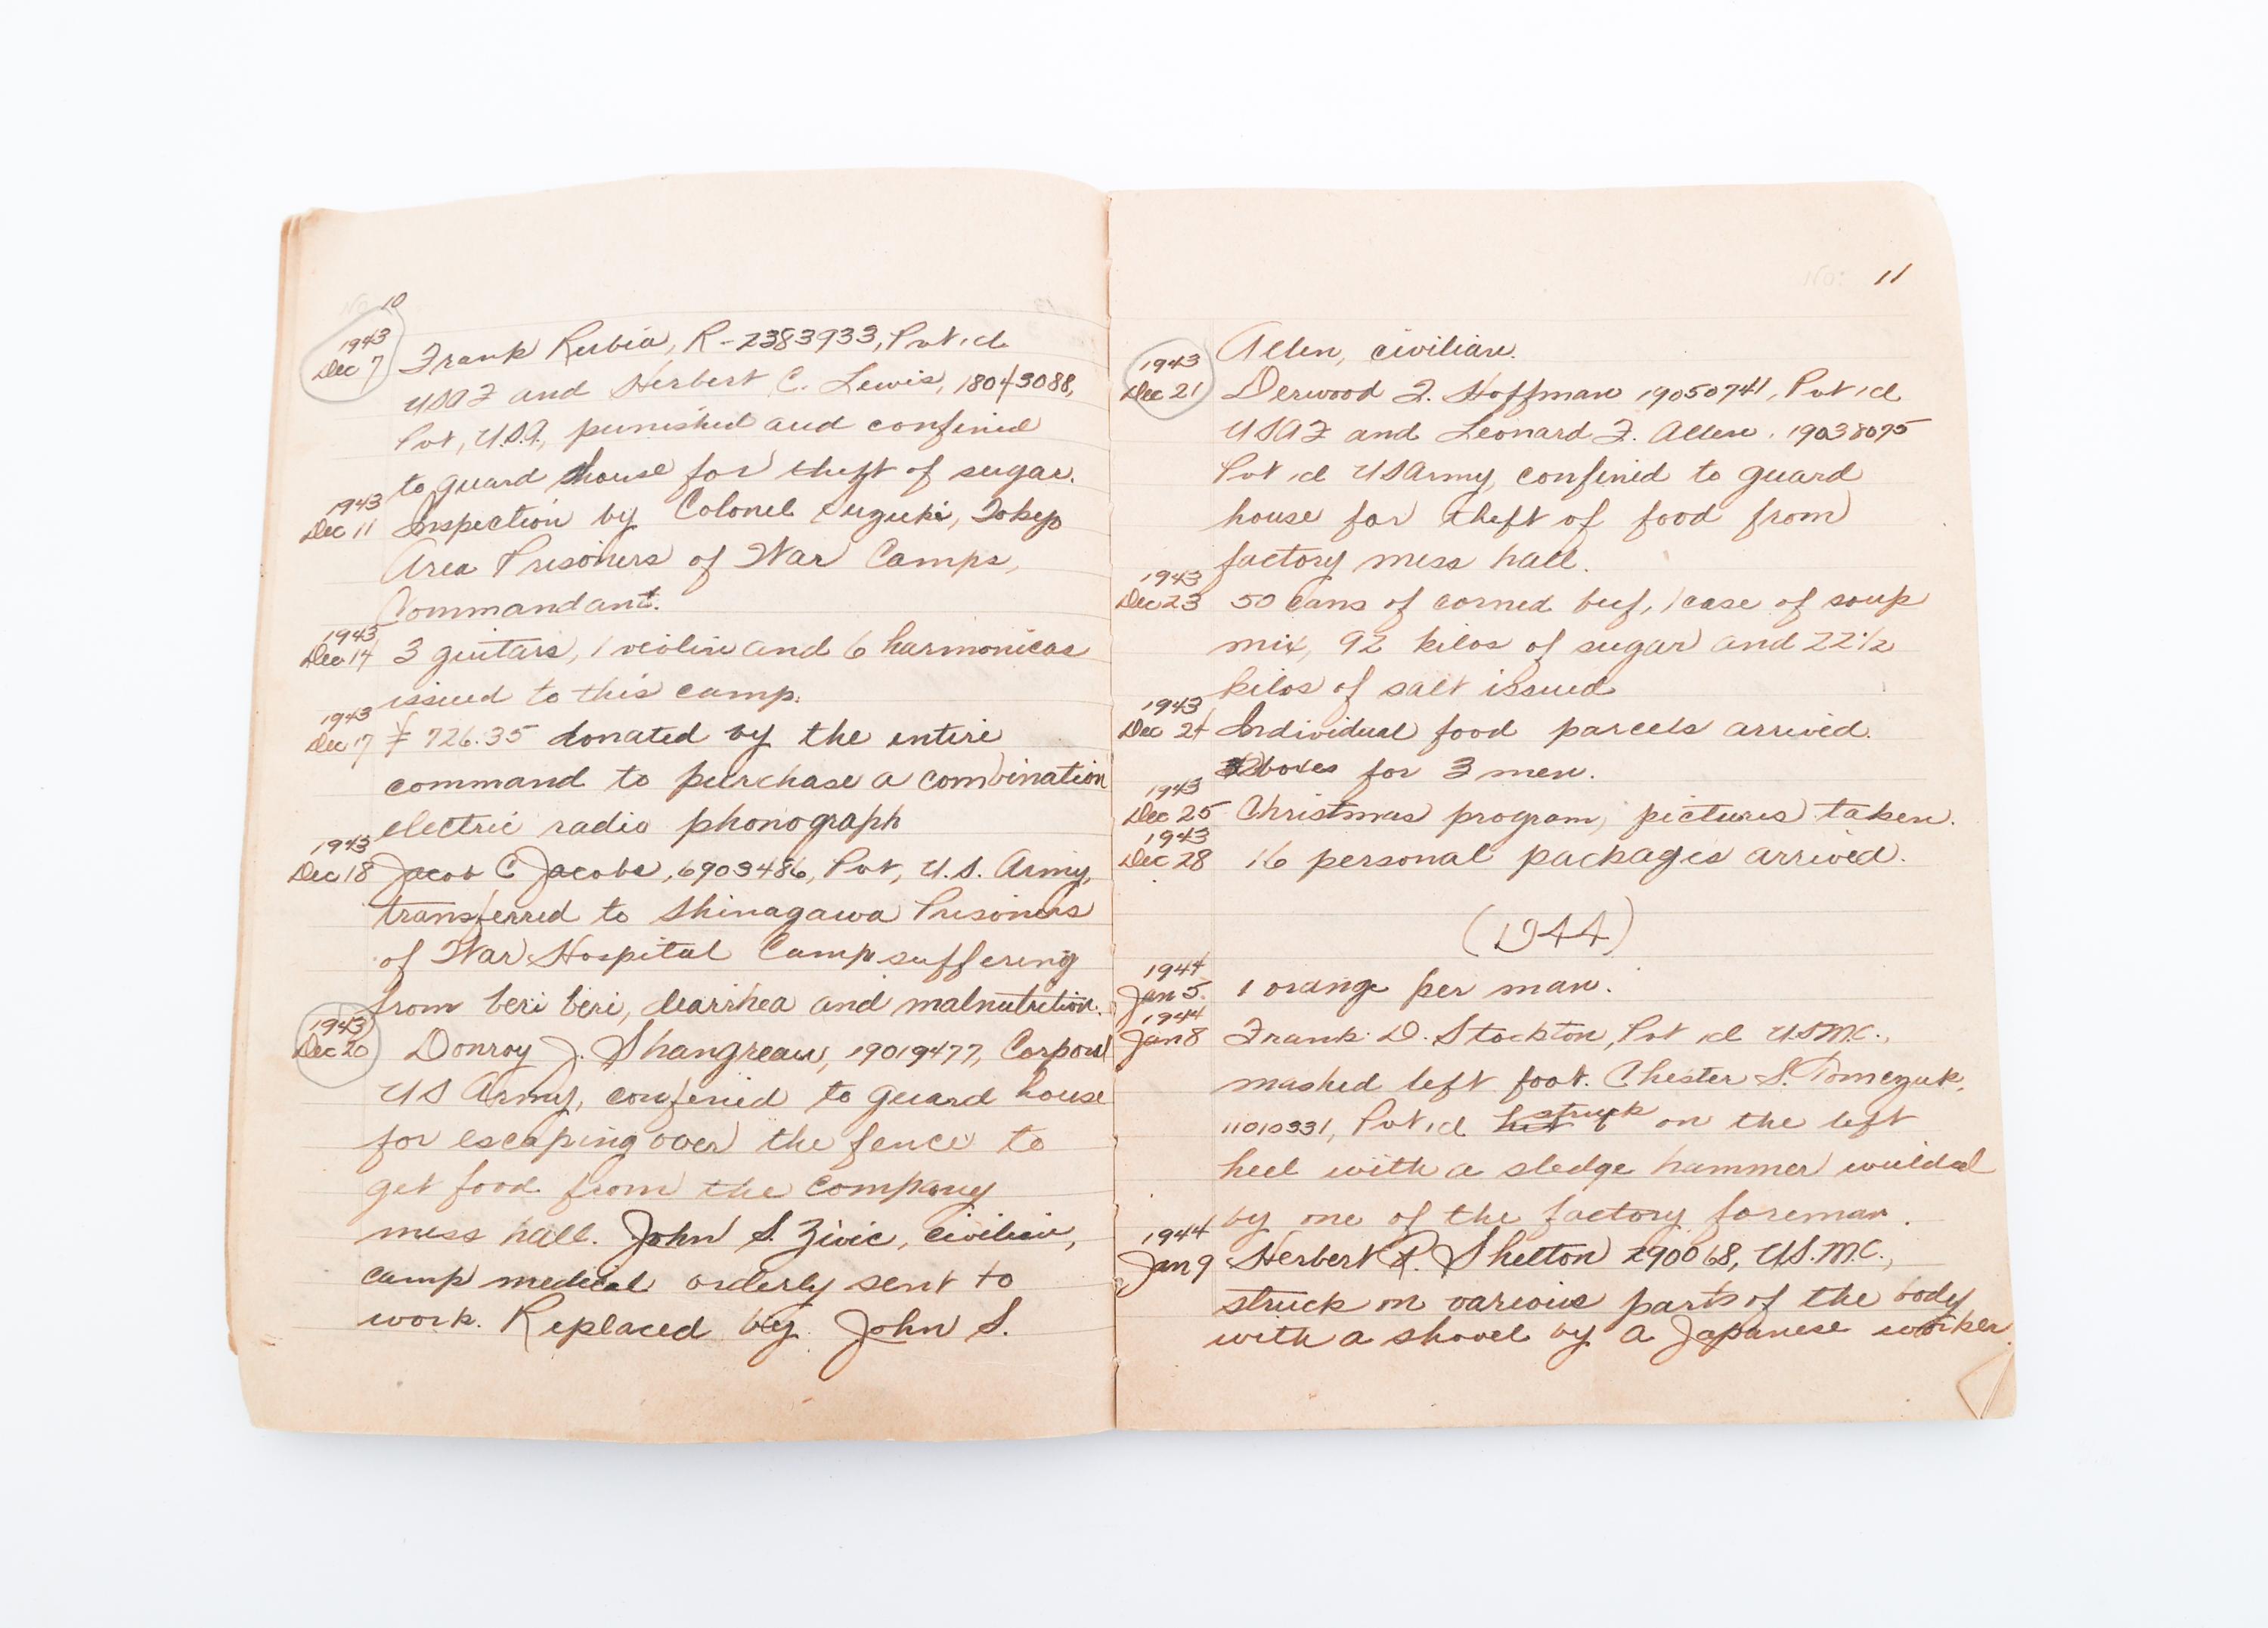 10
1943
Dec 7 Frank Rubia, R-2383933, Pvt 1cl
USAF and Herbert C. Lewis, 18043088,
Pvt, U.S.A., punished and confined
to guard house for theft of sugar.
1943
Dec 11 Inspection by Colonel Suzuki, Tokyo
Area Prisoners of War Camps,
Commandant.
1943
Dec 14 3 guitars, 1 violin and 6 harmonicas
issued to this camp.
1943
Dec 17 ¥ 726.35 donated by the entire
command to purchase a combination
electric radio phonograph
1943
Dec 18 Jacob C Jacobs, 6903486, Pvt, U.S. Army,
transferred to Shinagawa Prisoners
of War Hospital Camp suffering
from beri beri, diarrhea and malnutrition.
1943
Dec 20 Donroy J. Shangreau, 19019477, Corporal
US Army, confined to guard house
for escaping over the fence to
get food from the company
mess hall. John S. Zivic, civilian,
camp medical orderly sent to
work. Replaced by John S.
No. 11
Allen, civilian.
1943
Dec 21 Derwood F. Hoffman 19050741, Pvt 1cl
USAF and Leonard F. Allen, 19038075
Pvt 1cl US Army, confined to guard
house for theft of food from
factory mess hall.
1943
Dec 23 50 cans of corned beef, 1 case of soup
mix, 92 kilos of sugar and 22 1/2
kilos of salt issued
1943
Dec 24 Individual food parcels arrived.
boxes for 3 men.
1943
Dec 25 Christmas program, pictures taken.
1943
Dec 28 16 personal packages arrived.
(1944)
1944
Jan 5 1 orange per man.
1944
Jan 8 Frank D. Stockton, Pvt 1cl USMC.,
mashed left foot. Chester S. Tomczuk,
11010331, Pvt 1cl hit struck on the left
heel with a sledge hammer wielded
by one of the factory foreman.
1944
Jan 9 Herbert R. Shelton 290068, U.S.M.C.,
struck on various parts of the body
with a shovel by a Japanese worker.